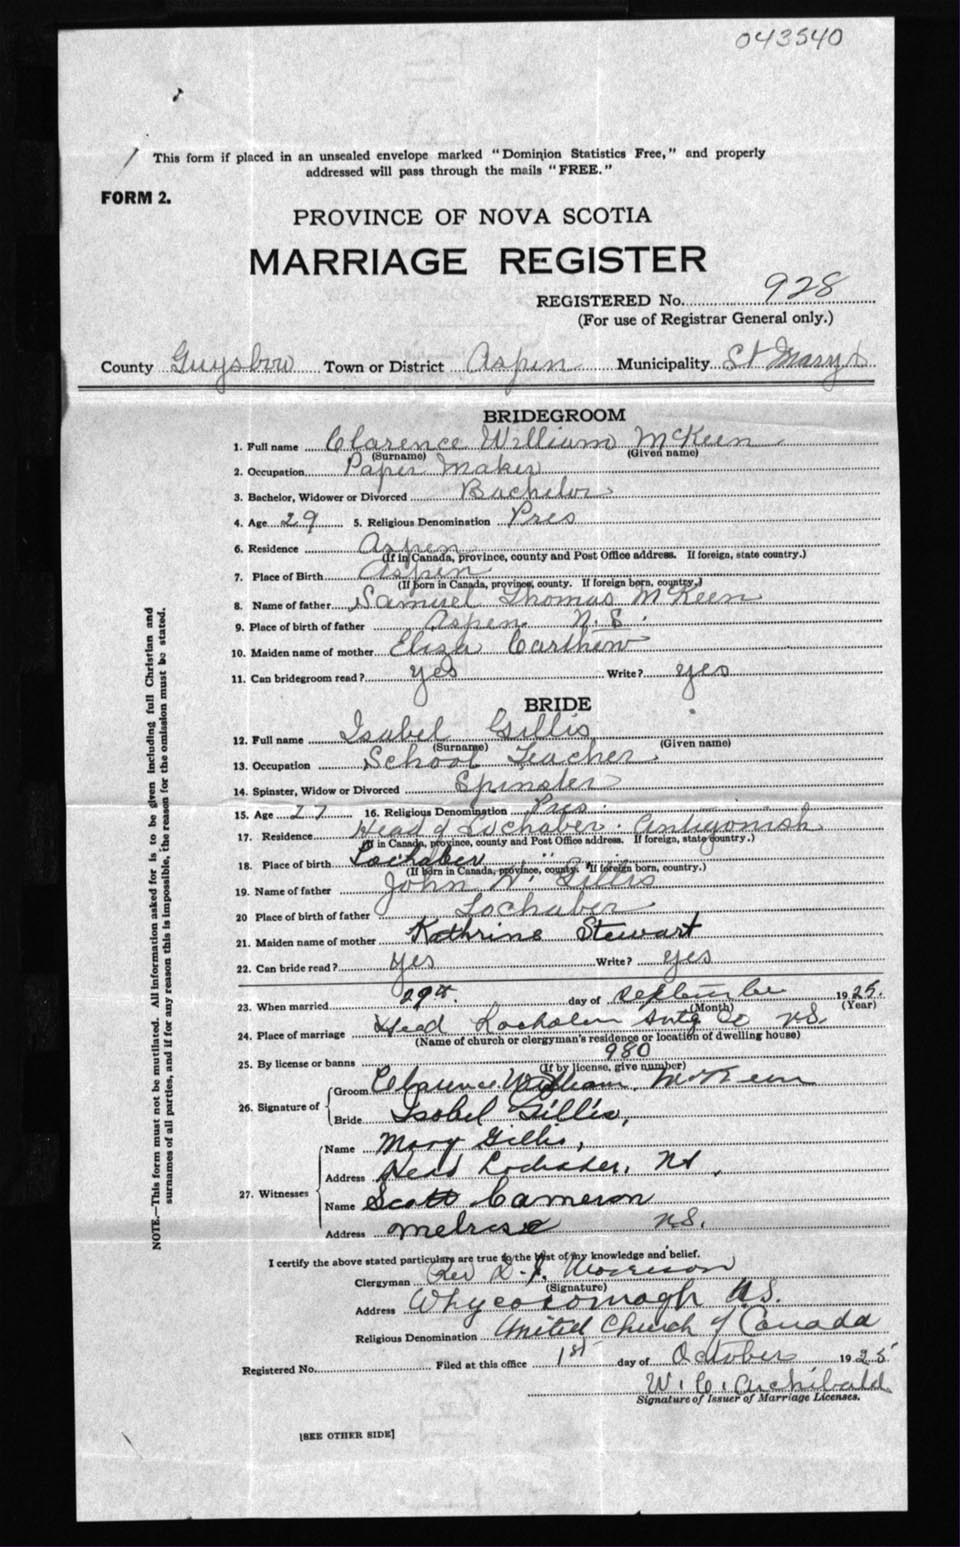 043540
This form if placed in an unsealed envelope marked "Dominion Statistics Free," and properly
addressed will pass through the mails "FREE."
FORM 2.
PROVINCE OF NOVA SCOTIA
MARRIAGE REGISTER
REGISTERED No. 928
(For use of Registrar General only.)
County Guysboro Town or District Aspen Municipality St Marys
BRIDEGROOM
1. Full name Clarence William McKeen
(Surname) (Given name)
2. Occupation Paper Maker
3. Bachelor, Widower or Divorced Bachelor
4. Age 29 5. Religious Denomination Pres
6. Residence Aspen
(If in Canada, province, county and Post Office address. If foreign, state country.)
7. Place of Birth Aspen
(If born in Canada, province, county. If foreign born, country.)
8. Name of father Samuel Thomas McKeen
9. Place of birth of father Aspen N.S.
10. Maiden name of mother Eliza
11. Can bridegroom read? yes Write? yes
BRIDE
12. Full name Isabel Gillis
(Surname) (Given name)
13. Occupation School Teacher
14. Spinster, Widow or Divorced Spinster
15. Age 27 16. Religious Denomination Pres.
17. Residence Head of Lochaber. Antigonish
(If in Canada, province, county and Post Office address. If foreign, state country.)
18. Place of birth Lochaber " "
(If born in Canada, province, county. If foreign born, country.)
19. Name of father John W. Gillis
20 Place of birth of father Lochaber
21. Maiden name of mother Kathrine Stewart
22. Can bride read? yes Write? yes
23. When married 29th. day of September 1925.
(Month) (Year)
24. Place of marriage Head Lochaber Antg Co NS.
(Name of church or clergyman's residence or location of dwelling house)
25. By license or banns 980
(If by license, give number)
26. Signature of Groom Clarence William McKeen
Bride Isobel Gillis,
27. Witnesses Name Mary Gillis,
Address Head Lochaber, NS,
Name Scott Cameron
Address Melrose N.S.
I certify the above stated particulars are true to the best of my knowledge and belief.
Clergyman Rev D. J. Morrison
(Signature)
Address Whycocomagh N.S.
Religious Denomination United Church of Canada
Registered No. Filed at this office 1st day of October 1925
W. C. Archibald
Signature of Issuer of Marriage Licenses.
[SEE OTHER SIDE]
NOTE.—This form must not be mutilated. All information asked for is to be given including full Christian and
surnames of all parties, and if for any reason this is impossible, the reason for the omission must be stated.